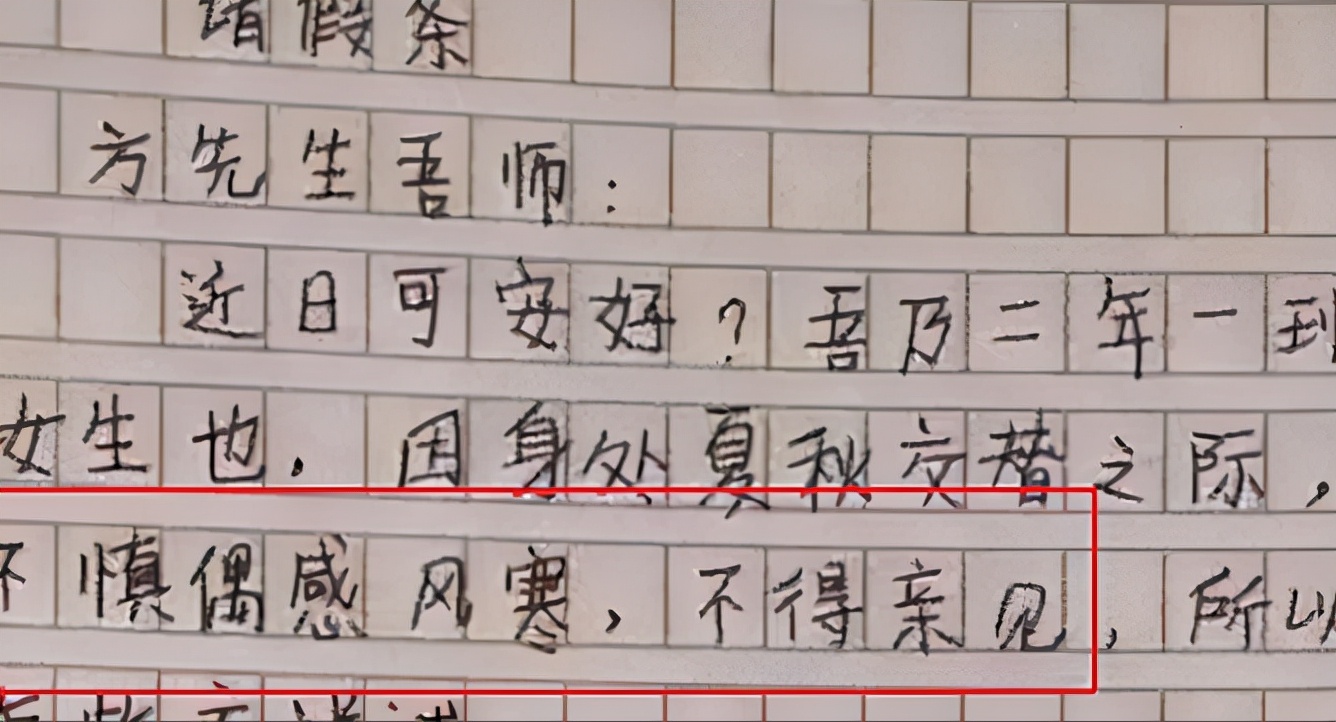 请假条
方先生吾师：
近日可安好？吾乃二年一到
女生也.因身处夏秋交替之际，
不慎偶感风寒，不得亲见，所以